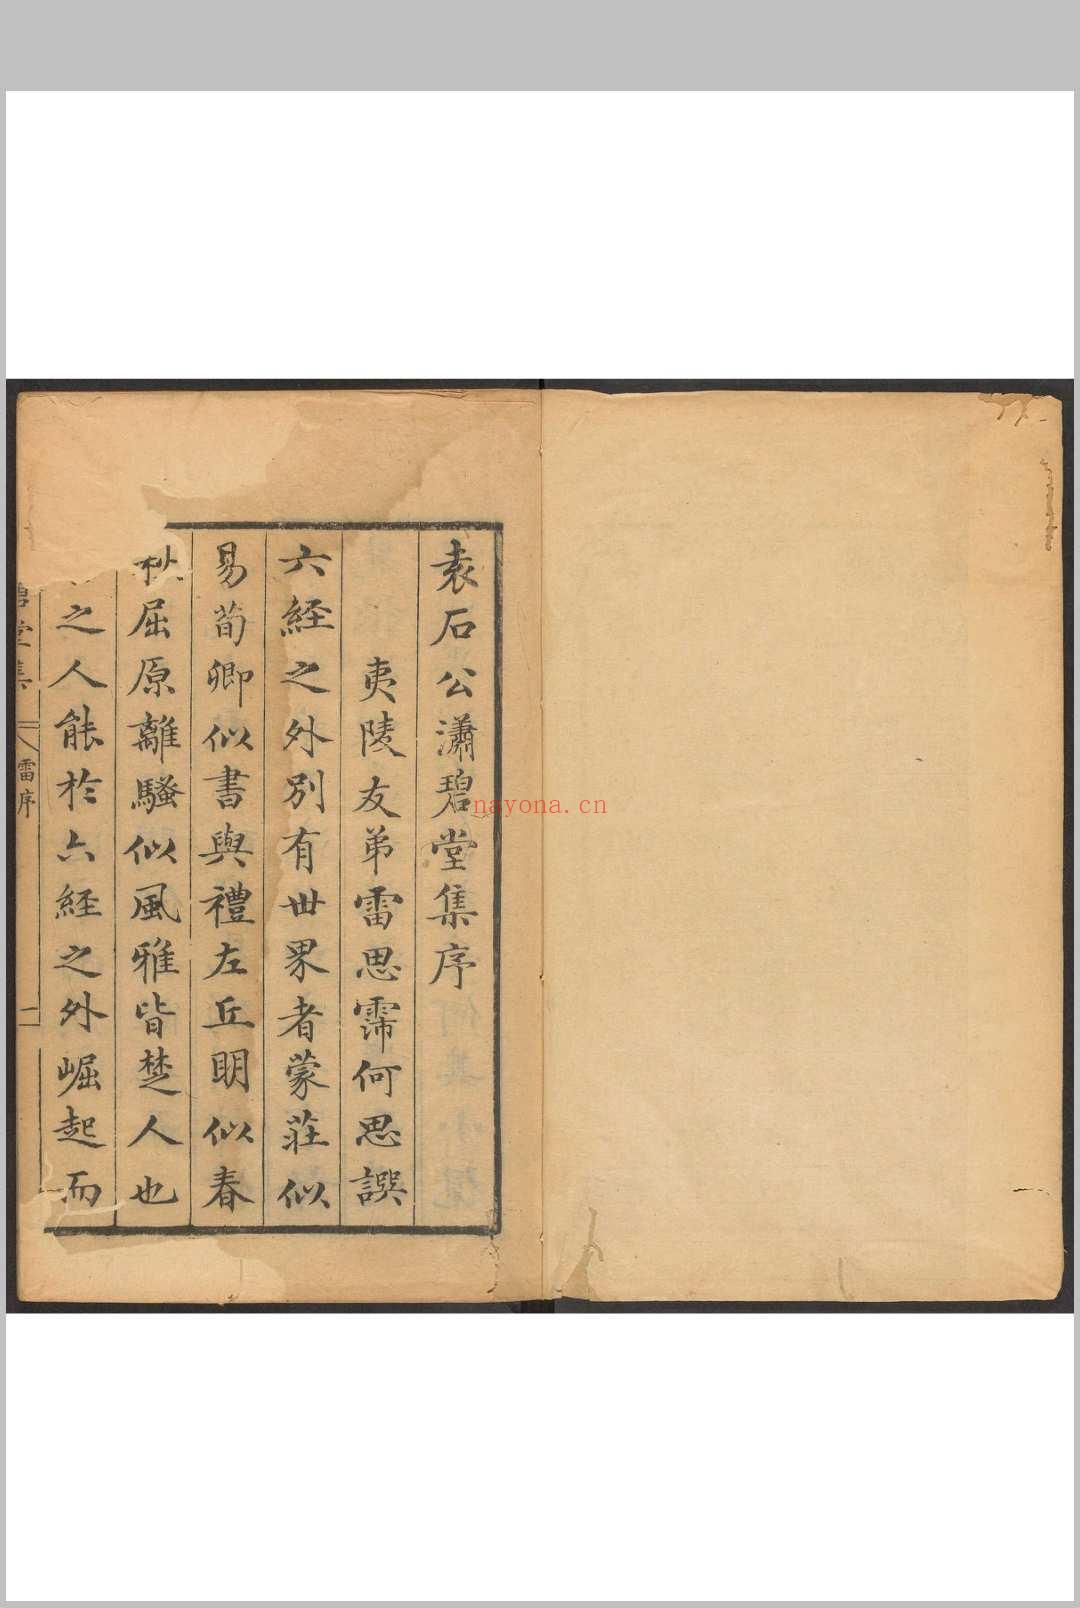 袁石公瀟碧堂集序
夷陵友弟雷思霈何思譔
六経之外別有丗界者蒙莊似
易荀卿似書與禮左丘明似春
秋屈原離騷似風雅皆楚人也
之人能於六経之外崛起而
碧堂集
雷序
一
nayona.cn